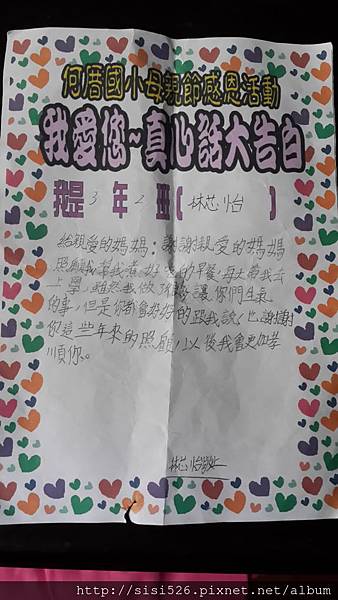 何厝國小母親節感恩活動
我愛您~真心話大告白
我是 3 年 2 班【 林芯怡 】
給親愛的媽媽.謝謝親愛的媽媽
照顧我幫我煮好吃的早餐,每天帶我去
上學,雖然我做 讓你們生氣
的事,但是你都會好好的跟我說,也謝謝
你這些年來的照顧,以後我會更加孝
順你。
林芯怡敬上
http://sisi526.pixnet.net/album